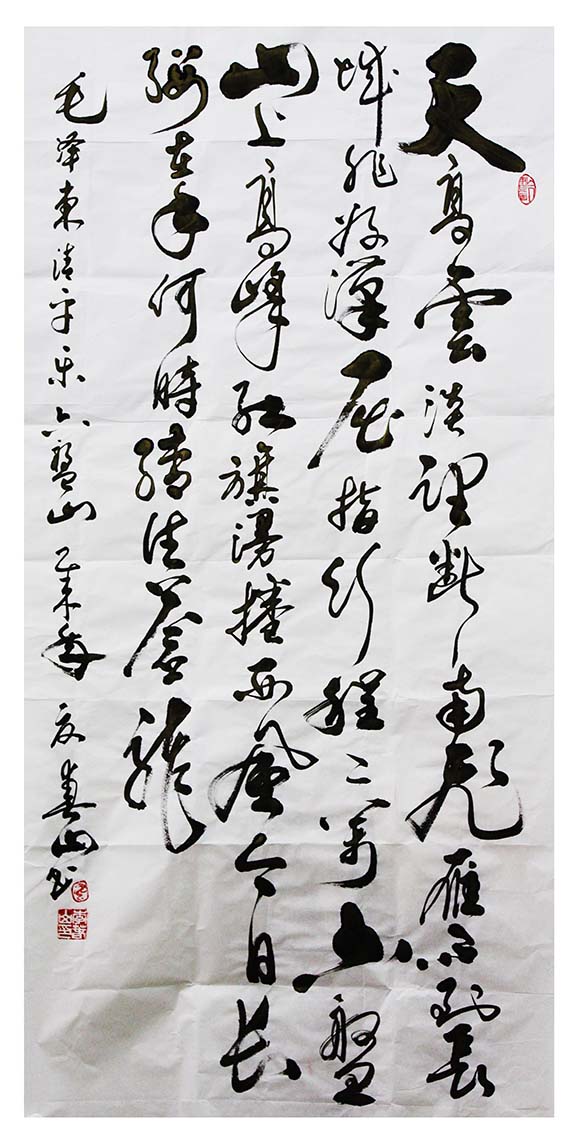 天高雲淡望斷南飛雁不到長
城非好漢屈指行程二萬六盤
山上高峰紅旗漫捲西風今日長
纓在手何時縛住蒼龍
毛泽東清平乐六盤山 乙未年 夏 春山书